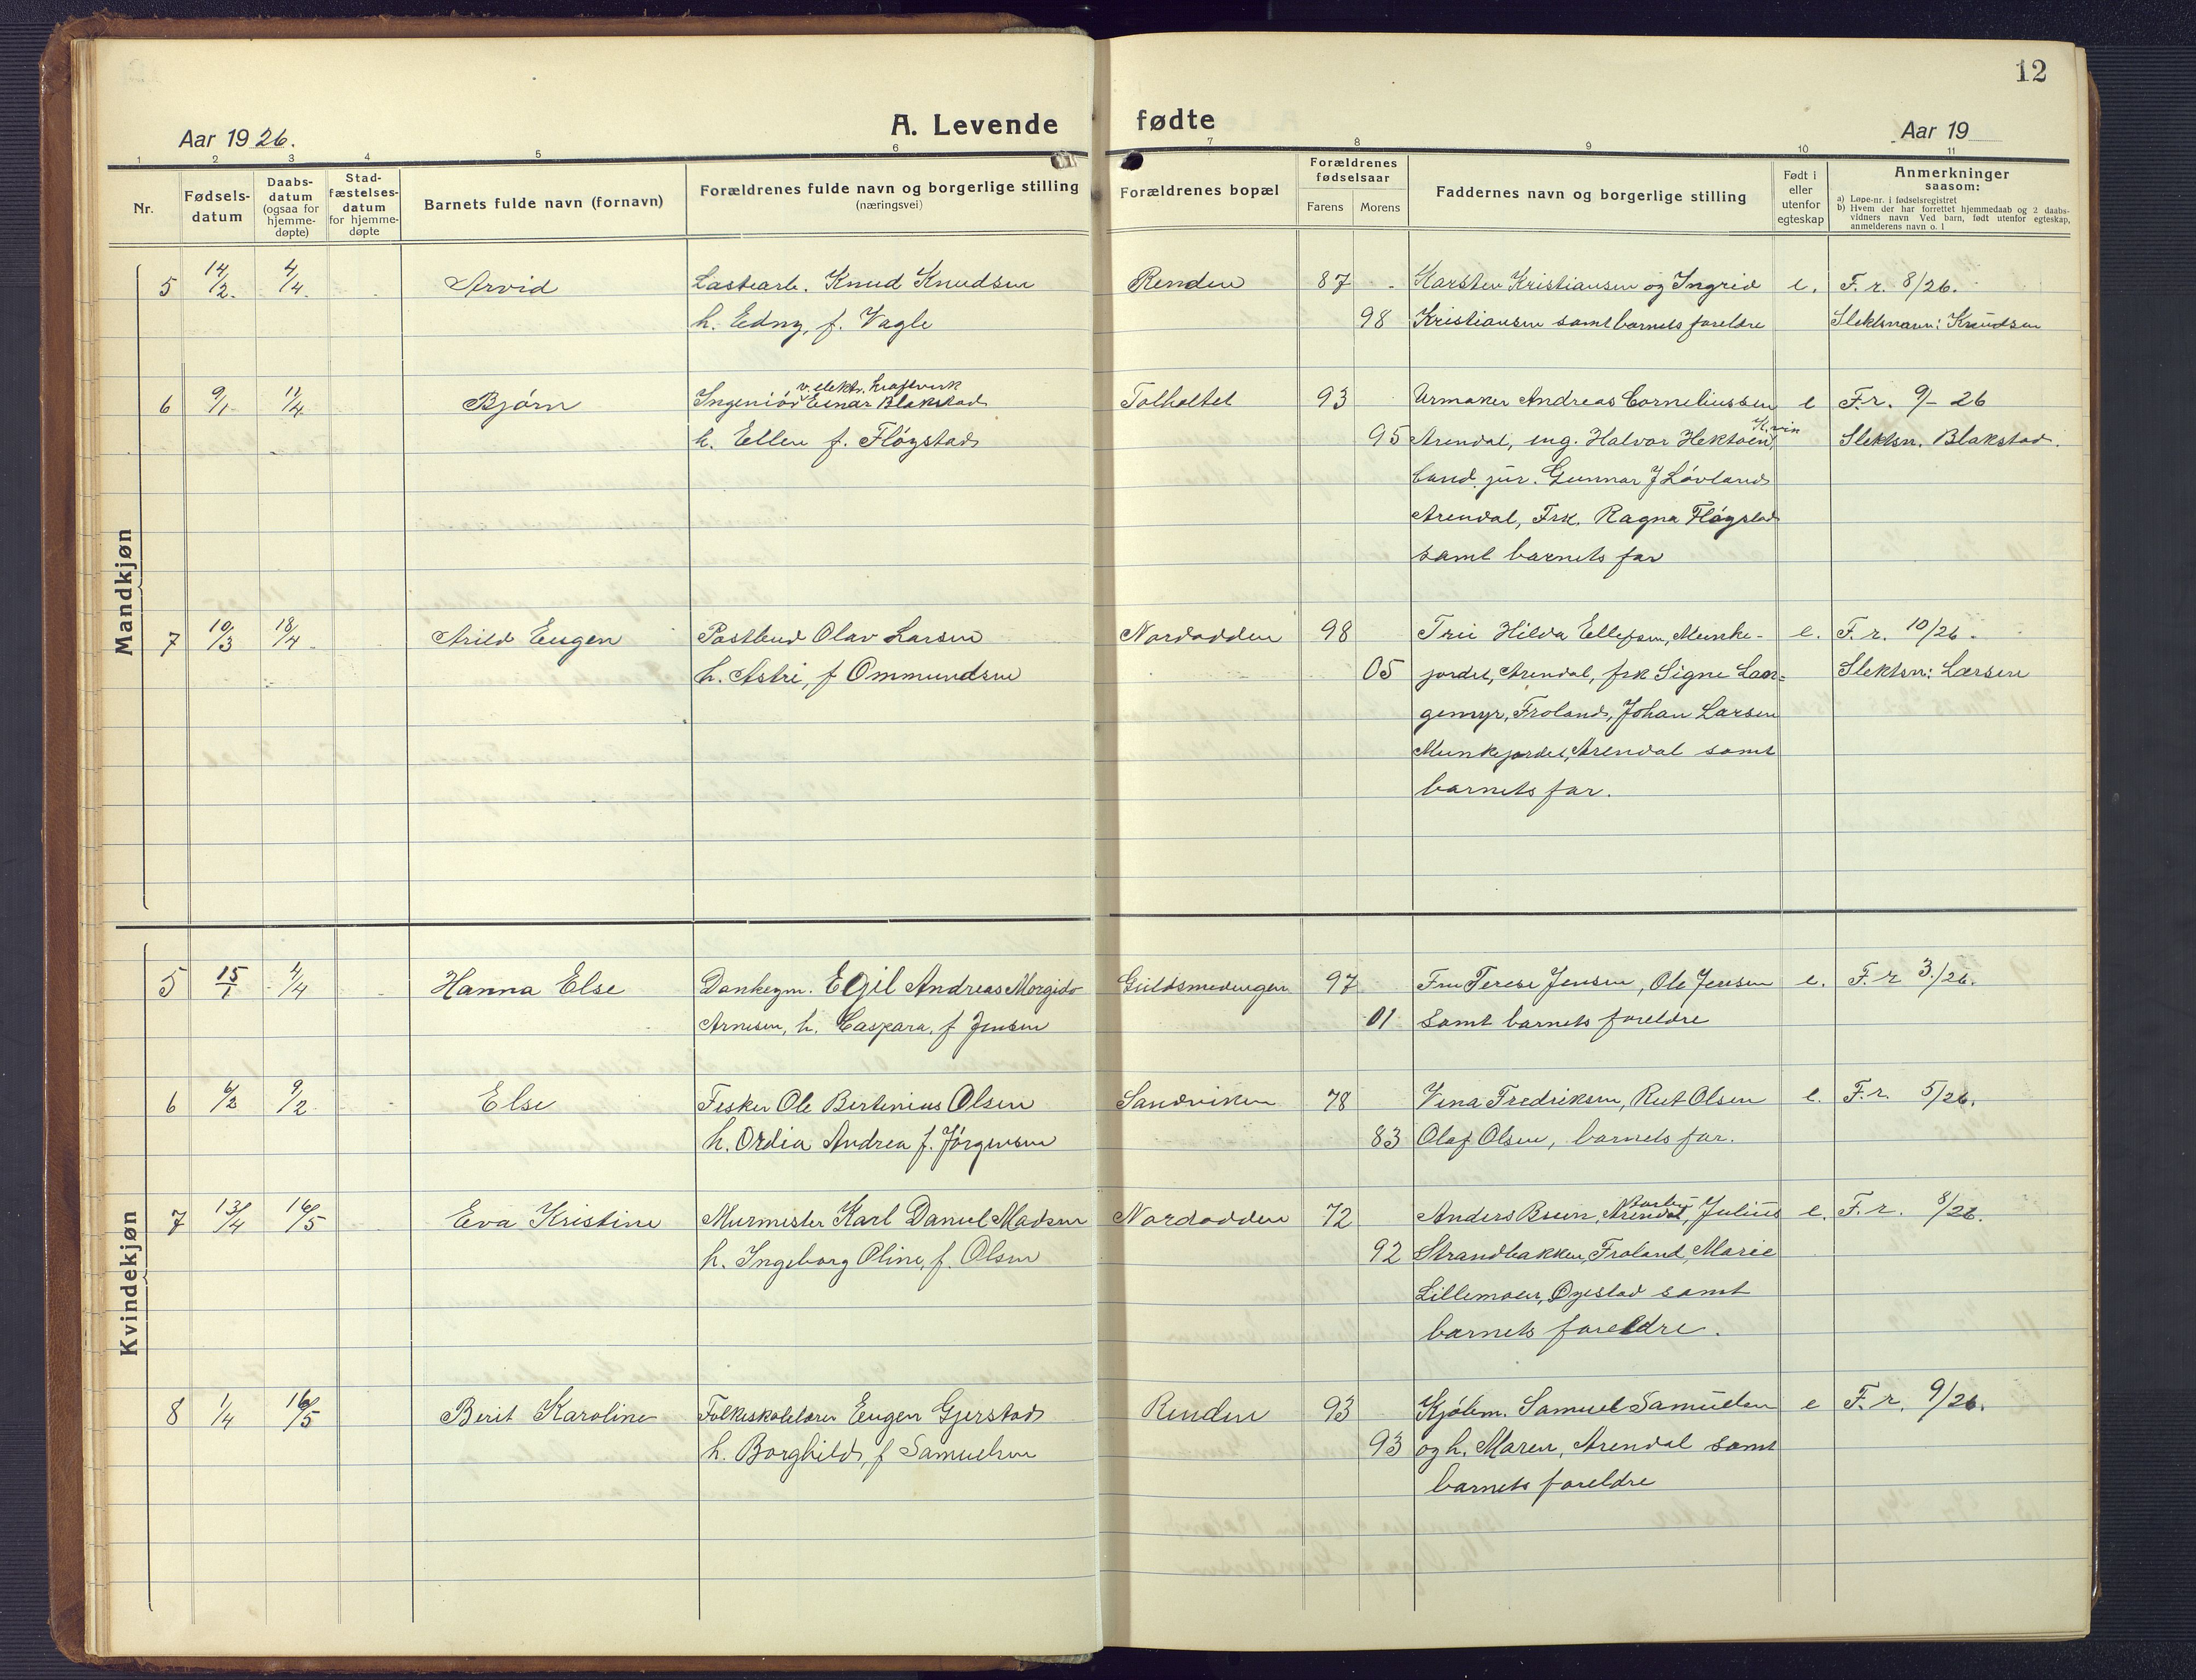 12
Aar 1926.
A. Levende fødte
Aar 19
1 2 3 4 5 6 7 8 9 10 11
Nr.
Fødsels-
datum
Daabs-
datum
(ogsaa for
hjemme-
døpte)
Stad-
fæstelses-
datum
for hjemme-
døpte
Barnets fulde navn (fornavn)
Forældrenes fulde navn og borgerlige stilling
(næringsvei)
Forældrenes bopæl
Forældrenes
fødselsaar
Farens Morens
Faddernes navn og borgerlige stilling
Født i
eller
utenfor
egteskap
Anmerkninger
saasom:
a) Løpe-nr. i fødselsregistret
b) Hvem der har forrettet hjemmedaab og 2 daabs-
vidners navn Ved barn, født utenfor egteskap,
anmelderens navn o. l
Mandkjøn
5 14/2. 4/4. Arvid Lastearb. Knud Knudsen Renden 87 Karsten Kristiansen og Ingrid e. F. r. 8/26.
h. Edny, f. Vagle 98 Kristiansen samt barnets foreldre Slektsnavn: Knudsen
v. elektr. kraftverk
6 9/1. 11/4. Bjørn Ingeniör Einar Blakstad Tolholtet 93 Urmaker Andreas Corneliussen e F.r. 9-26
h. Ellen f. Fløystad 95 Arendal, ing. Halvor Hektoen, Slektsn. Blakstad.
Cand. jur. Gunnar J Lövland
Arendal, Frk. Ragna Fløystad
samt barnets far
7 10/3 18/4. Arild Eugen Postbud Olav Larsen Nordodden 98 Hilda Ellefsen, Munke- e. F. r. 10/26.
h. Astri, f Ommundsen 05 jordet, Arendal, frk Signe Lan- Slektsn: Larsen
gemyr, Froland, Johan Larsen
Munkejordet, Arendal samt
barnets far.
Kvindekjøn
5 15/1 4/4 Hanna Else Dankeym. Egil Andreas Morgido Guldsmedengen 97 Fru Terese Jensen, Ole Jensen e. F. r 3./26.
Arnesen, h. Caspara, f Jensen 01 samt barnets foreldre
6 6/2 9/2. Else Fisker Ole Bertinius Olsen Sandviken 78 Vena Fredriksen, Rut Olsen e. F. r. 5/26.
h. Ordia Andrea f. Jörgensen 83 Olaf Olsen, barnets far.
Barbu
7 13/4 16/5 Eva Kristine Murmester Karl Daniel Madsen Nordodden 72 Anders Brun, Arendal, Julius e. F. r. 8/26.
h. Ingeborg Oline, f. Olsen 92 Strandbakken, Froland, Marie
Lillemoen, Øyestad samt
barnets foreldre.
8 1/4 16/5 Berit Karoline Folkeskolelærer Eugen Gjerstad Renden 93 Kjøbm. Samuel Samuelsen e F. r. 9/26.
h. Borghild, f Samuelsen 93 og h. Maren, Arendal samt
barnets foreldre